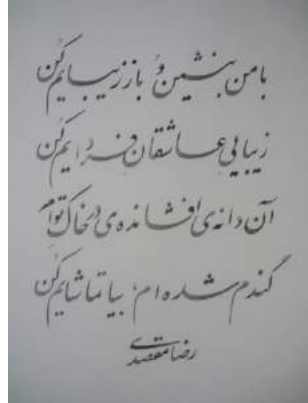 با من بنشین و باز زیبایم کن
زیبایی عاشقان فردایم کن
آن دانه‌ی افشانده‌ی در خاک توام
گندم شده‌ام، بیا تماشایم کن
رضا مقصدی